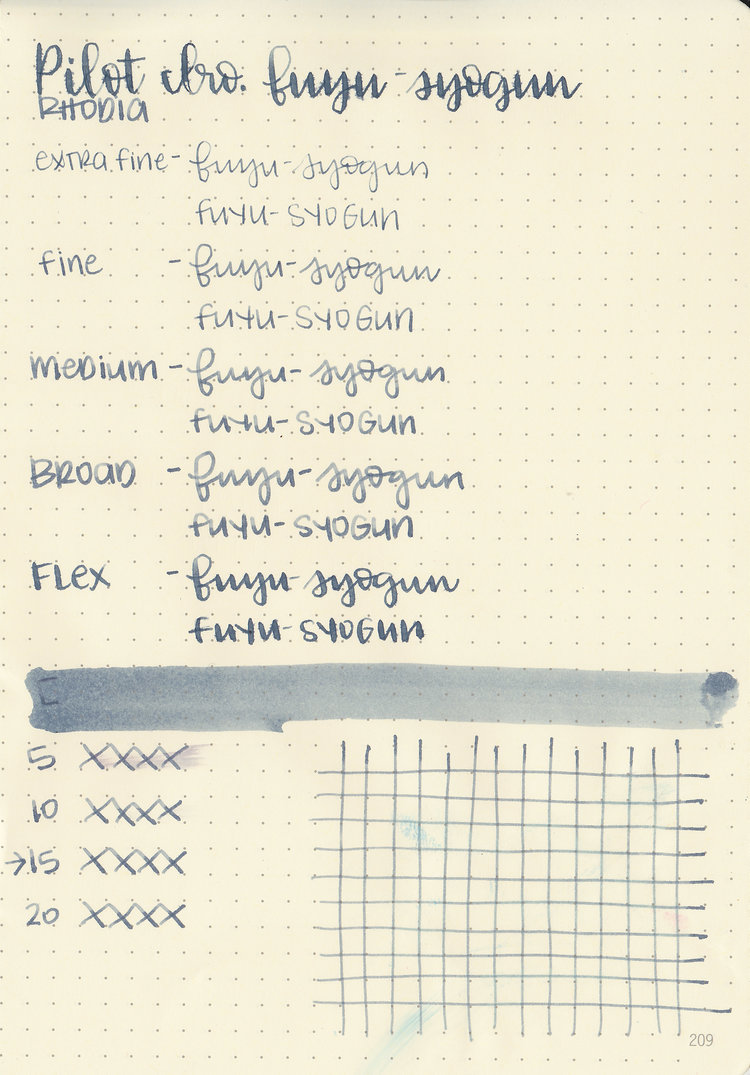 Pilot iro. fuyu-syogun
RHODIA
extra fine - fuyu-syogun
fuyu-syogun
fine - fuyu-syogun
fuyu-syogun
medium - fuyu-syogun
fuyu-syogun
Broad - fuyu-syogun
fuyu-syogun
Flex - fuyu-syogun
fuyu-syogun
5 XXXX
10 XXXX
→15 XXXX
20 XXXX
209